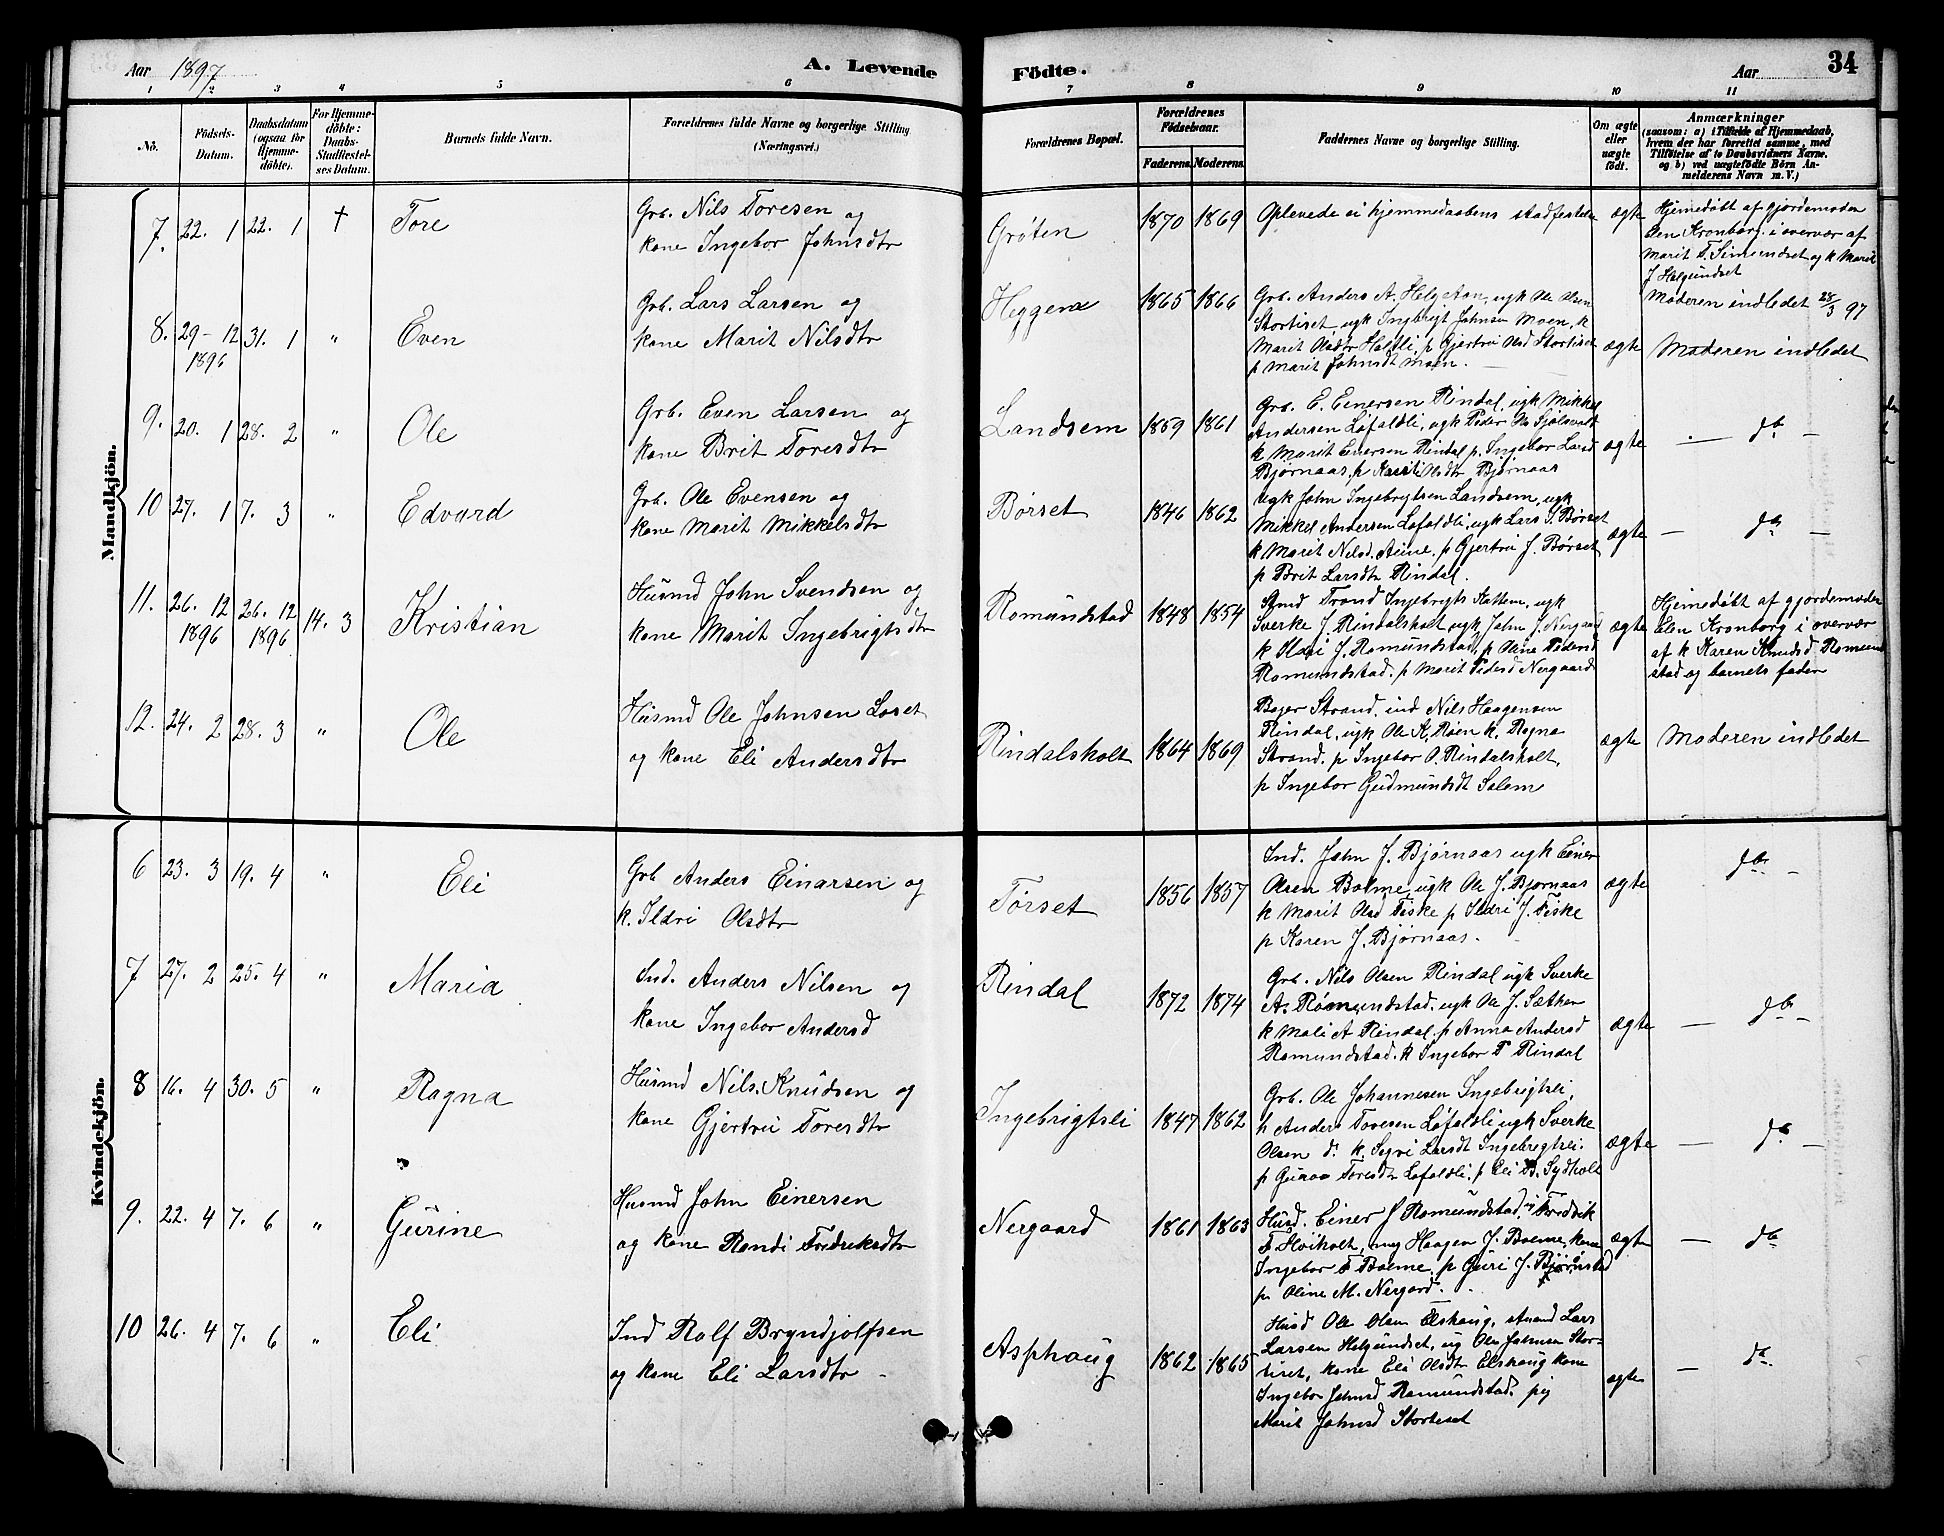 Aar 1897
A. Levende
Födte.
Aar
34
1 2 3 4 5 6 7 8 9 10 11
No.
Födsels-
Datum.
Daabsdatum
(ogsaa for
Hjemme-
döbte).
For Hjemme-
döbte:
Daabs-
Stadfæstel-
ses Datum.
Barnets fulde Navn.
Forældrenes fulde Navne og borgerlige Stilling.
(Næringsvei.)
Forældrenes Bopæl.
Forældrenes
Födselsaar.
Faderens. Moderens.
Faddernes Navne og borgerlige Stilling.
Om ægte
eller
uægte
födt.
Anmærkninger
(saasom: a) i Tilfælde af Hjemmedaab,
hvem der har forrettet samme, med
Tilföielse af to Daabsvidners Navne,
og b) ved uægtefödte Börn An-
melderens Navn m. V.)
Mandkjön.
7. 22. 1 22. 1 † Tore
Grb. Nils Toresen og
kone Ingebor Johnsdtr
Grøten 1870 1869
Oplevede ei hjemmedaabens stadfestelse
ægte
Hjemedøbt af gjordemoder
Elen Kronborg i overvær af
Marit T. Simundset og k Marit
J Helgundset
Moderen indledet 28/3 97
8. 29-12 31. 1 " Even
1896
Grb. Lars Larsen og
kone Marit Nilsdtr
Heggem 1865 1866
Grb. Anders A. Helgetun, ugk Ole Olsen
Stortiset ugk Ingebrigt Johnsen Moen, k
Marit Olsdtr Halsli, p Gjertru Olsd Stortiset
p Marit Johnsdt Moen.
ægte Moderen indledet
9. 20. 1 28. 2 " Ole
Grb. Even Larsen og
kone Brit Toresdtr
Landsem 1859 1861
Grb. E. Einersen Rindal, ugk Mikkel
Andersen Løfaldli, ugk Peder Ols Sjølsvold
k Marit Einersen Rindal p. Ingebor Larsd
Bjørnaas, p Kristi Olsdtr Bjørnaas
ægte — do —
10 27. 1 7. 3 " Edvard
Grb. Ole Evensen og
kone Marit Mikkelsdtr
Børset 1846 1862
Ugk John Ingebrigtsen Landsem, ugk
Mikkel Andersen Løfaldli, ugk Lars J. Børset
k Marit Nilsd. Aune. p Gjertru J. Børset
p Brit Larsdtr Rindal.
ægte — do —
11. 26. 12 26. 12 14. 3 Kristian
1896 1896
Husmd John Svendsen og
kone Marit Ingebrigtsdtr
Romundstad 1848 1854
Smd Trond Ingebrigts Kattem, ugk
Sverke J. Rindalsholt, ugk John J. Nergaard
k Ildri J. Romundstad, p Oline Pedersd
Romundstad. p Marit Pedersd Nergaard
ægte
Hjemedøbt af gjordemoder
Elen Kronborg i overvær
af k Karen Knudsd Romund
stad og barnets fader
12. 24. 2 28. 3 " Ole
Husmd Ole Johnsen Løset
og kone Eli Andersdtr
Rindalsholt 1864 1869
Bojer Strand, ind Nils Haagensen
Rindal, ugk Ole K. Røen k. Ragna
Strand. p Ingebor O. Rindalsholt,
p Ingebor Gudmundsdt Solem
ægte Moderen indledet
Kvindekjön.
6 23. 3 19. 4 " Eli
Grb Anders Einarsen og
k. Ildri Olsdtr
Tørset 1856 1857
Ind. John J. Bjørnaas ugk Einer
Olsen Bolme, ugk Ole J. Bjørnaas
k Marit Olsd Fiske p Ildri J. Fiske
p Karen J. Bjørnaas.
ægte do —
7 27. 2 25. 4 " Maria
Ind. Anders Nilsen og
kone Ingebor Andersd
Rindal 1872 1874
Grb. Nils Olsen Rindal ugk Sverke
A. Romundstad. ugk Ole J. Sæther
k Mali A Rindal. p Anna Andersd
Romundstad. k Ingebor T Rindal
ægte — do —
8 16. 4 30. 5 " Ragna
Husmd Nils Knudsen og
kone Gjertru Toresdtr
Ingebrigtsli 1847 1862
Grb. Ole Johannesen Ingebrigtsli,
p Anders Toresen Løfaldli ugk Sverke
Olsen do k. Segri Larsdt Ingebrigtsli.
p Guroa Toresdtr Løfaldli, p Eli B. Sydholt
ægte — do —
9. 22. 4 7. 6 " Gurine
Husmd John Einersen
og kone Randi Fredriksdtr
Nergaard 1861 1863
Husd. Einer J Romundstad, " Fredrik
F Hviholt, ung Haagen J. Bolme, kone
Ingebor F Bolme, p Guri J. Bjørnstad
p. Oline M. Nergard.
ægte — do
10 26. 4 7. 6 " Eli
Ind Rolf Bryndjolfsen
og kone Eli Larsdtr
Asphaug 1862 1865
Husd Ole Olsen Elshaug, strand Lars
Larsen Helgundset, ug Ole Johnsen Stor-
tiset, kone Eli Olsdtr Elshaug kone
Ingebor Johnsd Romundstad, pig
Marit Johnsd Stortiset
ægte — do